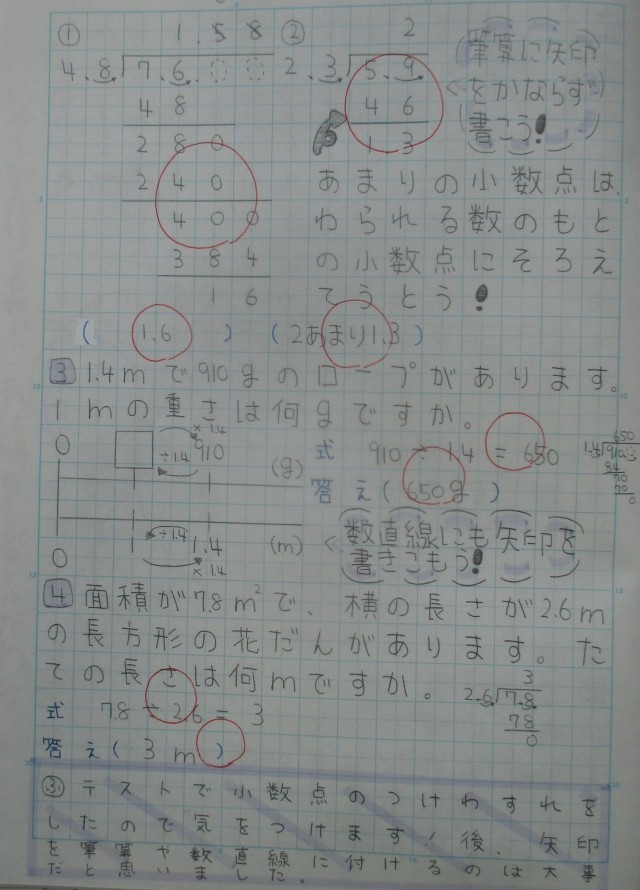 ① 1.58
4.8)7.6
48
280
240
400
384
16
(1.6)
② 2
2.3)5.9
46
1.3
筆算に矢印
をかならず
書こう!
あまりの小数点は、
わられる数のもと
の小数点にそろえ
てうとう!
(2あまり1.3)
3 1.4mで910gのロープがあります。
1mの重さは何gですか。
0 □ 910 (g)
×1.4
÷1.4
0 1.4 (m)
÷1.4
×1.4
式 910÷1.4=650
答え(650g)
650
1.4)910.0
84
70
70
0
<数直線にも矢印を
書きこもう!
4 面積が7.8m²で、横の長さが2.6m
の長方形の花だんがあります。た
ての長さは何mですか。
式 7.8÷2.6=3
答え(3m)
3
2.6)7.8
78
0
ふ テストで小数点のつけわすれを
したので気をつけます!後、矢印
を筆算や数直線に付けるのは大事
だと思いました。